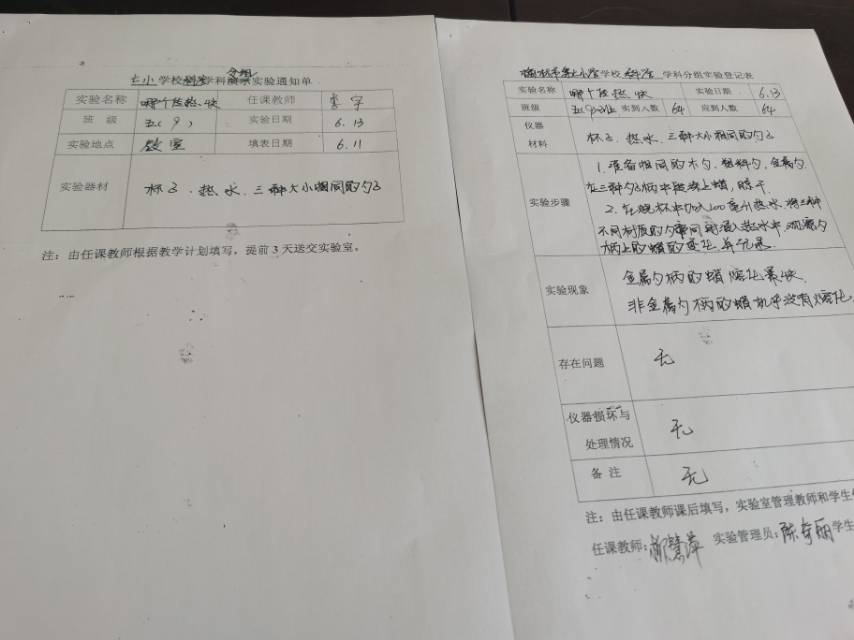 七小学校科学学科分组实验通知单
实验名称 哪个传热快 任课教师
班 级 五(9) 实验日期 6.13
实验地点 教室 填表日期 6.11
实验器材 杯子、热水、三种大小相同的勺子
注：由任课教师根据教学计划填写，提前3天送交实验室。
学校科学学科分组实验登记表
实验名称 哪个传热快 实验日期 6.13
班级 五(9)班 实到人数 64 应到人数 64
仪器
材料
杯子、热水、三种大小相同的勺子
实验步骤
1. 准备相同的木勺、塑料勺、金属勺
在三种勺子柄中段涂上蜡，晾干
2. 在烧杯中加入200毫升热水，将三种
不同材质的勺同时插入热水中，观察勺
柄上的蜡的变化并记录
实验现象
金属勺柄的蜡熔化最快
非金属勺柄的蜡几乎没有熔化
存在问题 无
仪器损坏与
处理情况
无
备 注 无
注：由任课教师课后填写，实验室管理教师和学生
任课教师： 实验管理员： 学生